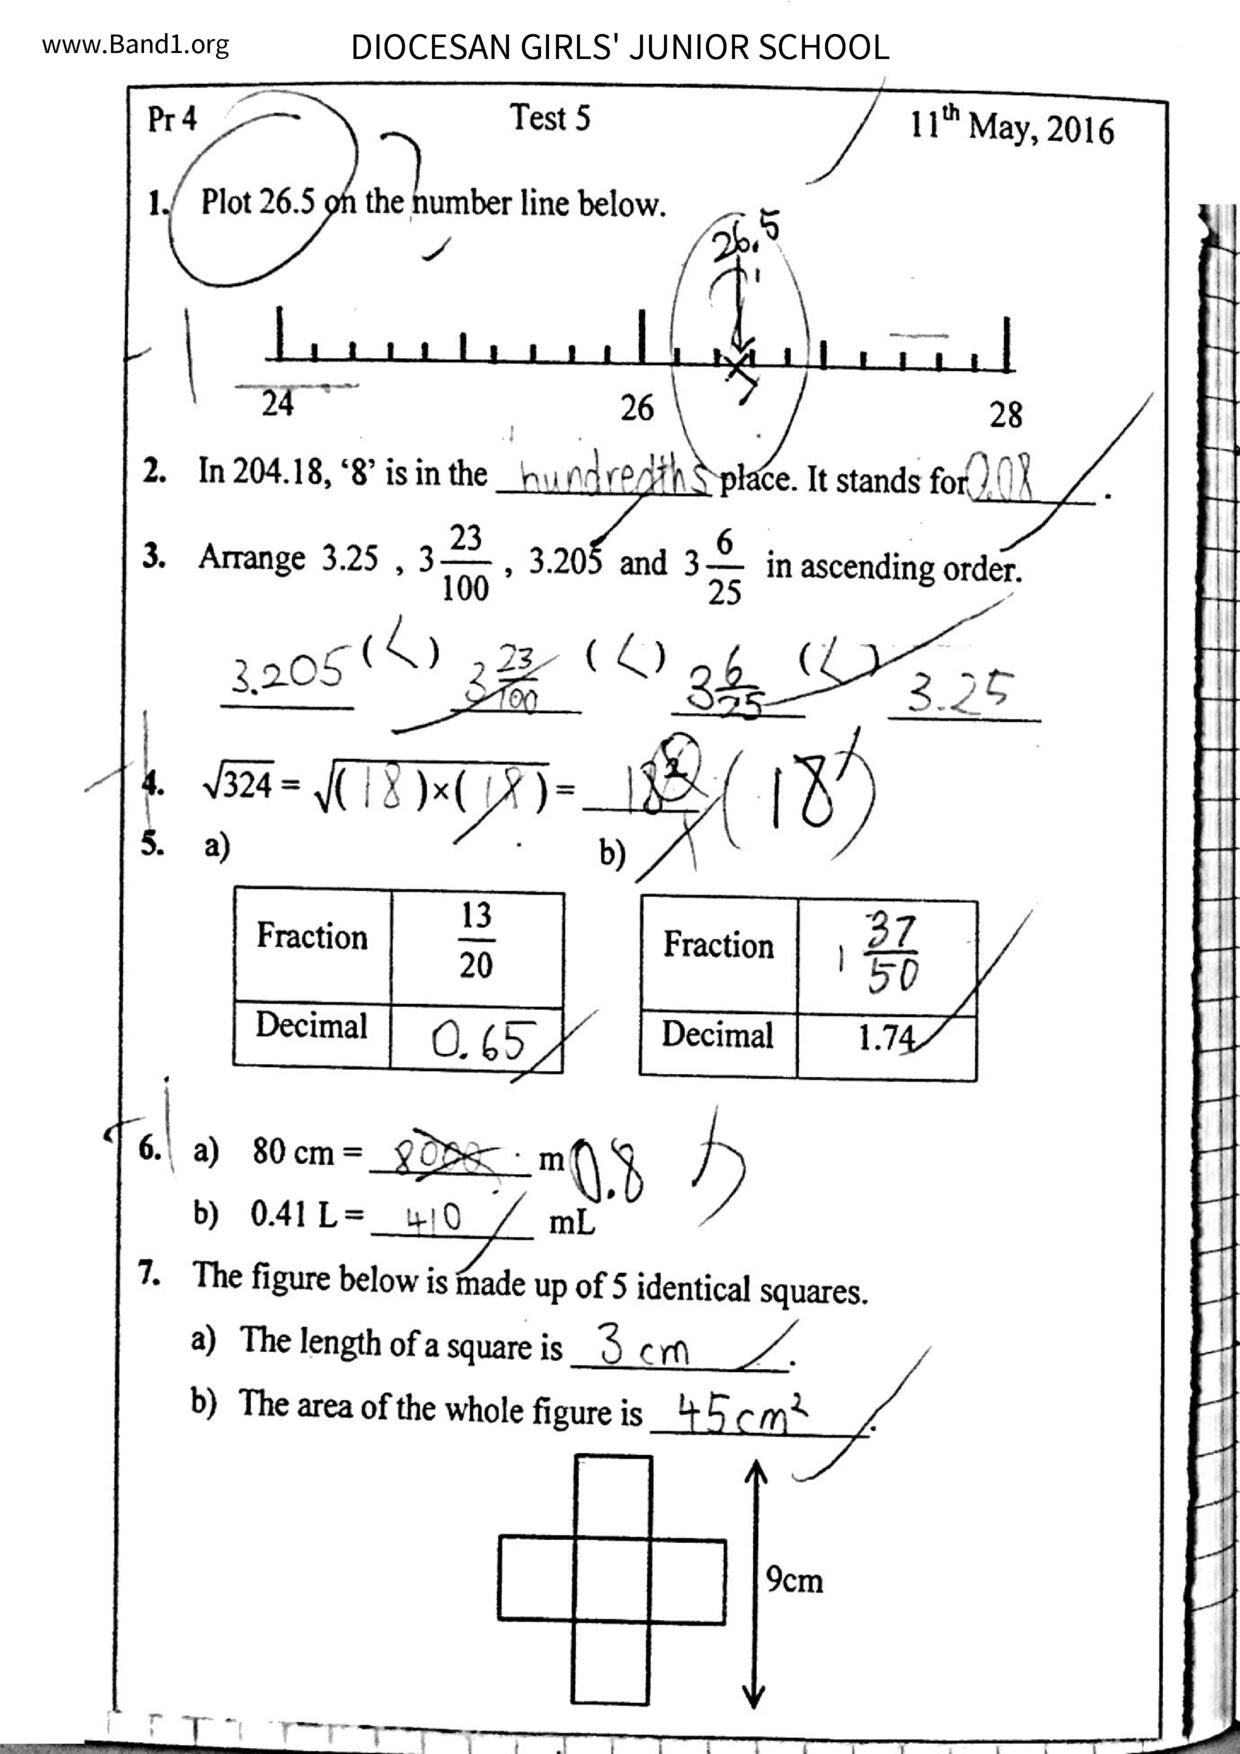 www.Band1.org DIOCESAN GIRLS' JUNIOR SCHOOL
Pr 4 Test 5 11th May, 2016
1. Plot 26.5 on the number line below.
26.5
24 26 28
2. In 204.18, ‘8’ is in the hundredths place. It stands for 0.08 .
3. Arrange 3.25 , 3 23/100 , 3.205 and 3 6/25 in ascending order.
3.205 (<) 3 23/100 (<) 3 6/25 (<) 3.25
4. √324 = √(18)×(18) = 18² (18)
5. a) b)
Fraction 13/20 Fraction 1 37/50
Decimal 0.65 Decimal 1.74
6. a) 80 cm = 8000 m 0.8
b) 0.41 L = 410 mL
7. The figure below is made up of 5 identical squares.
a) The length of a square is 3 cm .
b) The area of the whole figure is 45cm² .
9cm